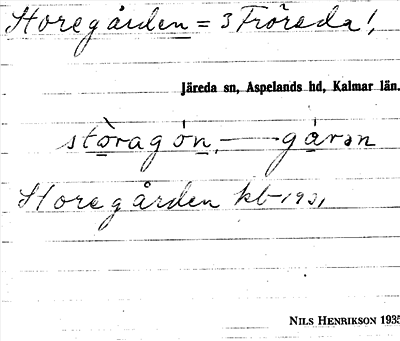 Storegården = 3 Fröreda!,
Järeda sn, Aspelands hd, Kalmar län.
stòragón, — gárən
Storegården kb 1931
NILS HENRIKSON 1935